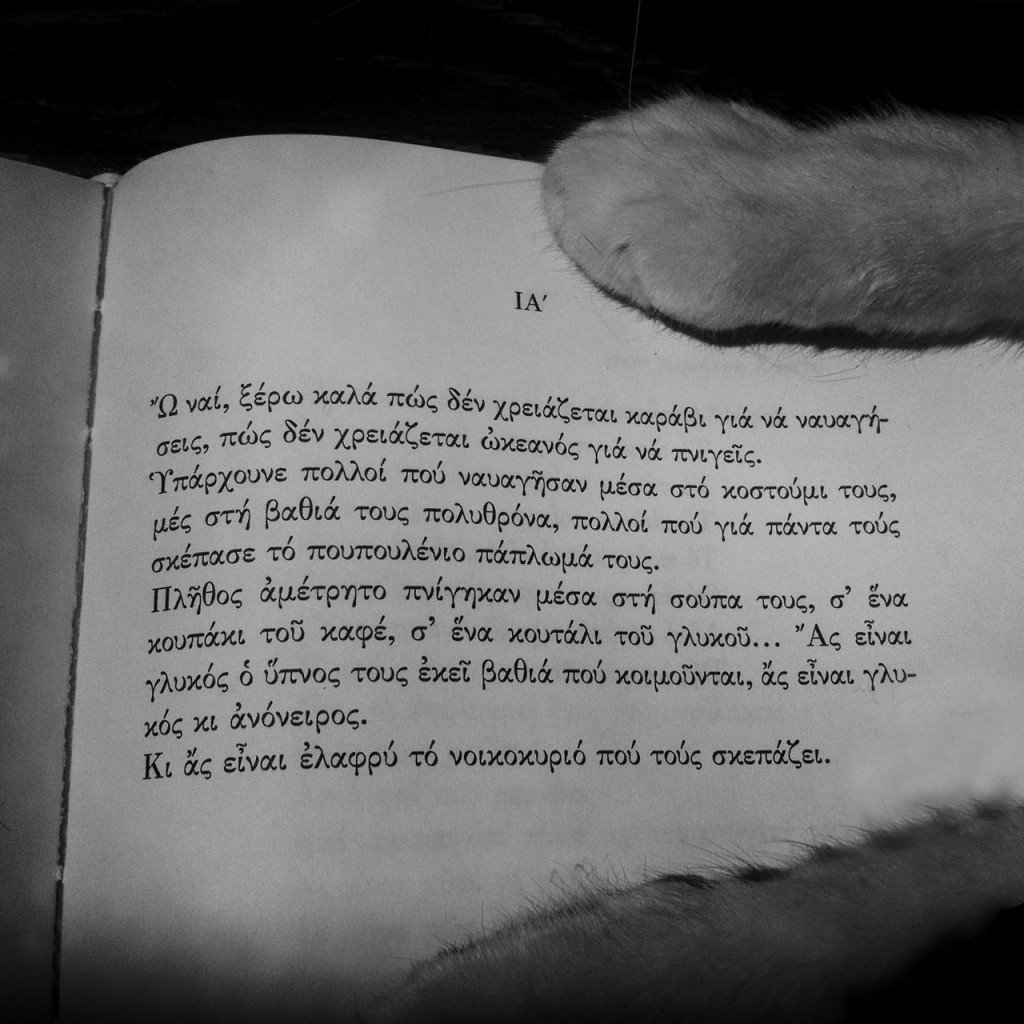 ΙΑ′
Ὢ ναί, ξέρω καλά πώς δέν χρειάζεται καράβι γιά νά ναυαγή-
σεις, πώς δέν χρειάζεται ὠκεανός γιά νά πνιγεῖς.
Ὑπάρχουνε πολλοί πού ναυαγῆσαν μέσα στό κοστούμι τους,
μές στή βαθιά τους πολυθρόνα, πολλοί πού γιά πάντα τούς
σκέπασε τό πουπουλένιο πάπλωμά τους.
Πλῆθος ἀμέτρητο πνίγηκαν μέσα στή σούπα τους, σ’ ἕνα
κουπάκι τοῦ καφέ, σ’ ἕνα κουτάλι τοῦ γλυκοῦ... Ἄς εἶναι
γλυκός ὁ ὕπνος τους ἐκεῖ βαθιά πού κοιμοῦνται, ἄς εἶναι γλυ-
κός κι ἀνόνειρος.
Κι ἄς εἶναι ἐλαφρύ τό νοικοκυριό πού τούς σκεπάζει.